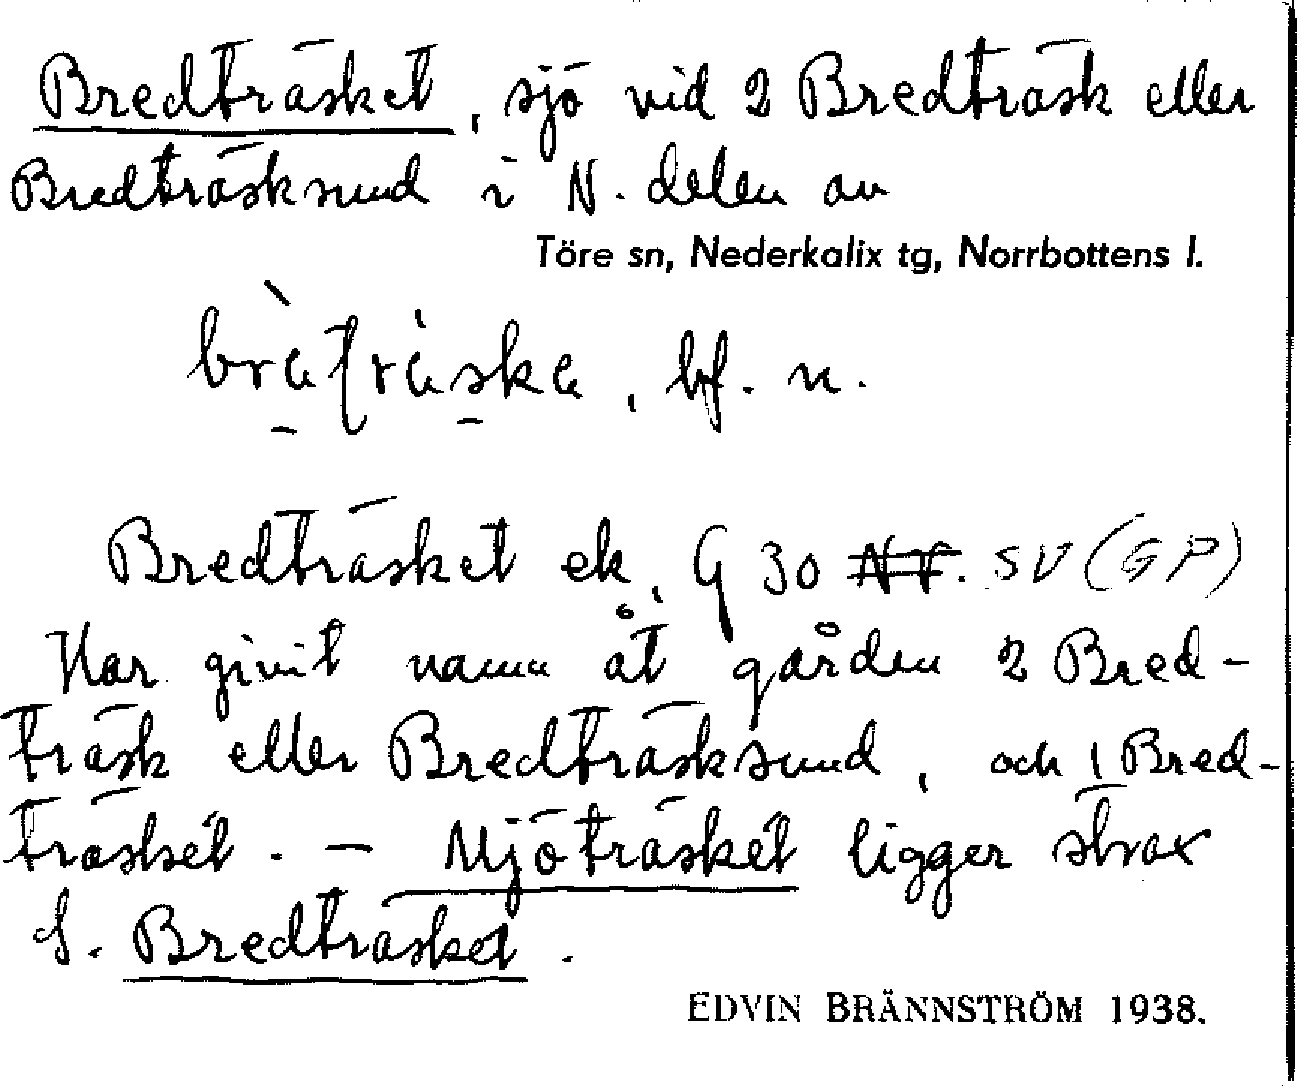 Bredträsket, sjö vid 2 Bredträsk eller
Bredträsksund i N. delen av
Töre sn, Nederkalix tg, Norrbottens l.
bf. n.
Bredträsket ek, G 30 NV. SV (GP)
Har givit namn åt gården 2 Bred-
träsk eller Bredträsksund, och 1 Bred-
träsket. - Mjöträsket ligger strax
S. Bredträsket.
EDVIN BRÄNNSTRÖM 1938.